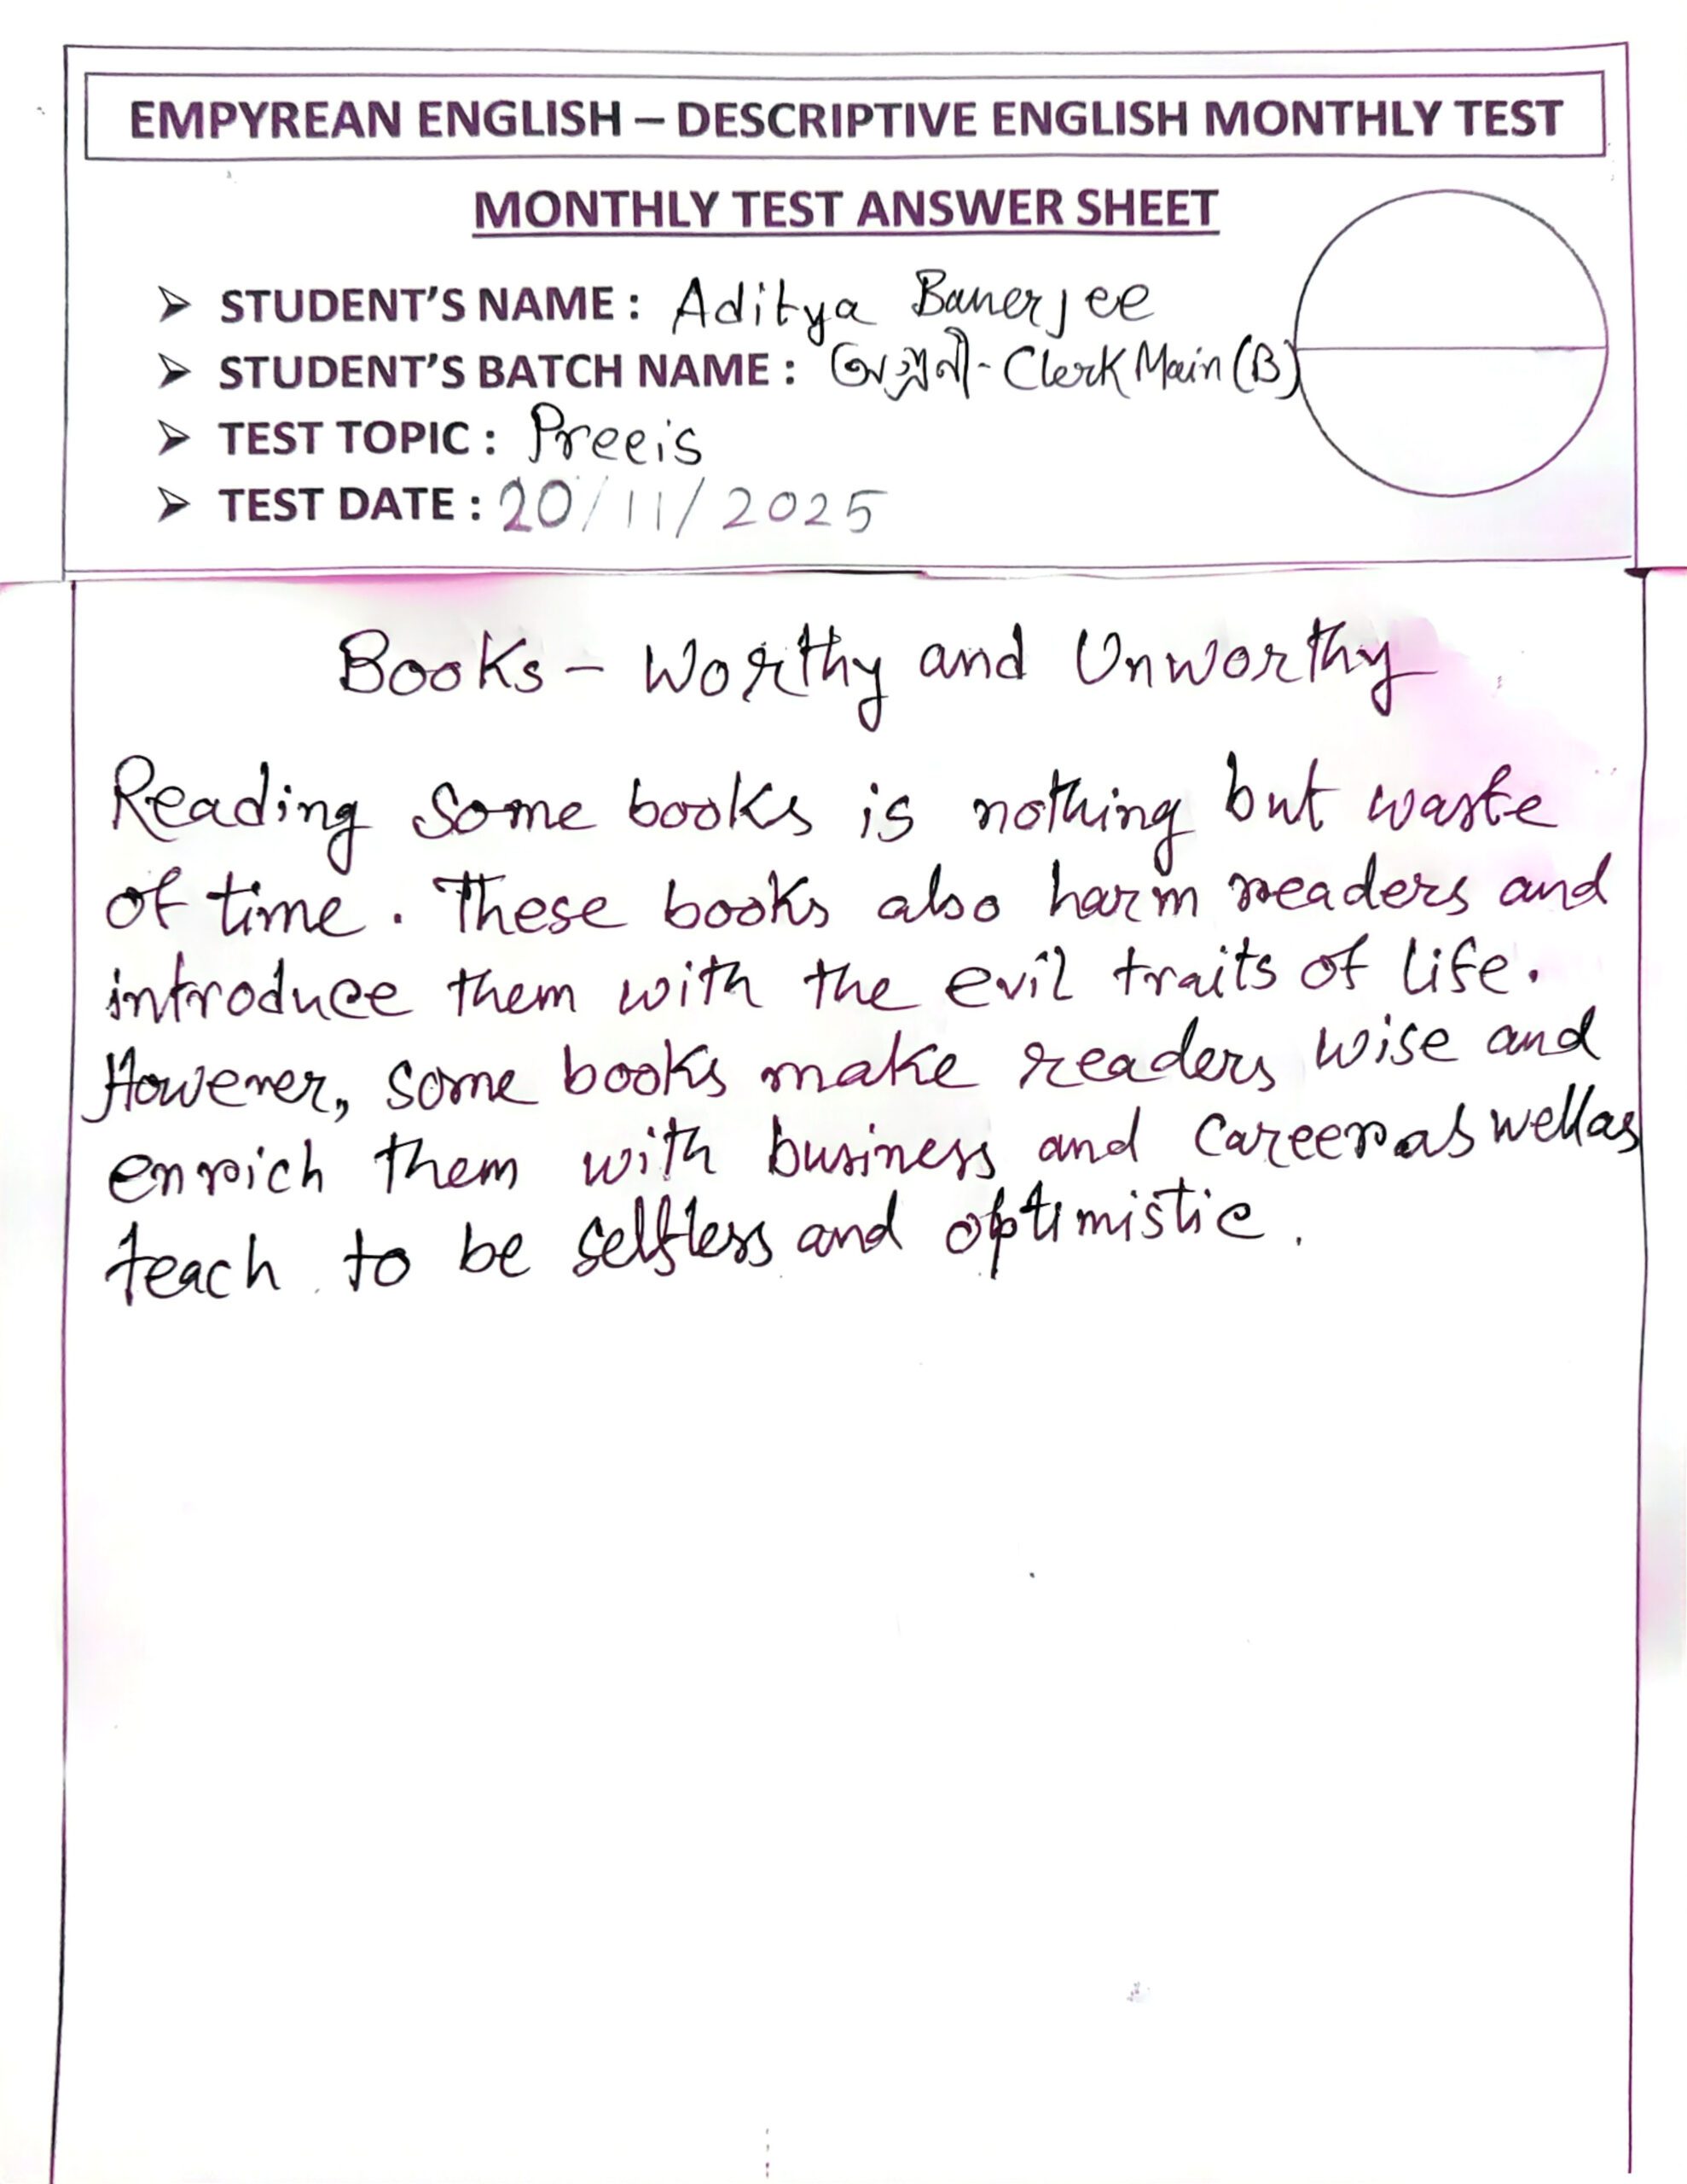 EMPYREAN ENGLISH – DESCRIPTIVE ENGLISH MONTHLY TEST
MONTHLY TEST ANSWER SHEET
➢ STUDENT'S NAME : Aditya Banerjee
➢ STUDENT'S BATCH NAME : - Clerk Main (B)
➢ TEST TOPIC : Precis
➢ TEST DATE : 20/11/2025
Books – Worthy and Unworthy
Reading some books is nothing but waste
of time. These books also harm readers and
introduce them with the evil traits of life.
However, some books make readers wise and
enrich them with business and career as well as
teach to be selfless and optimistic.